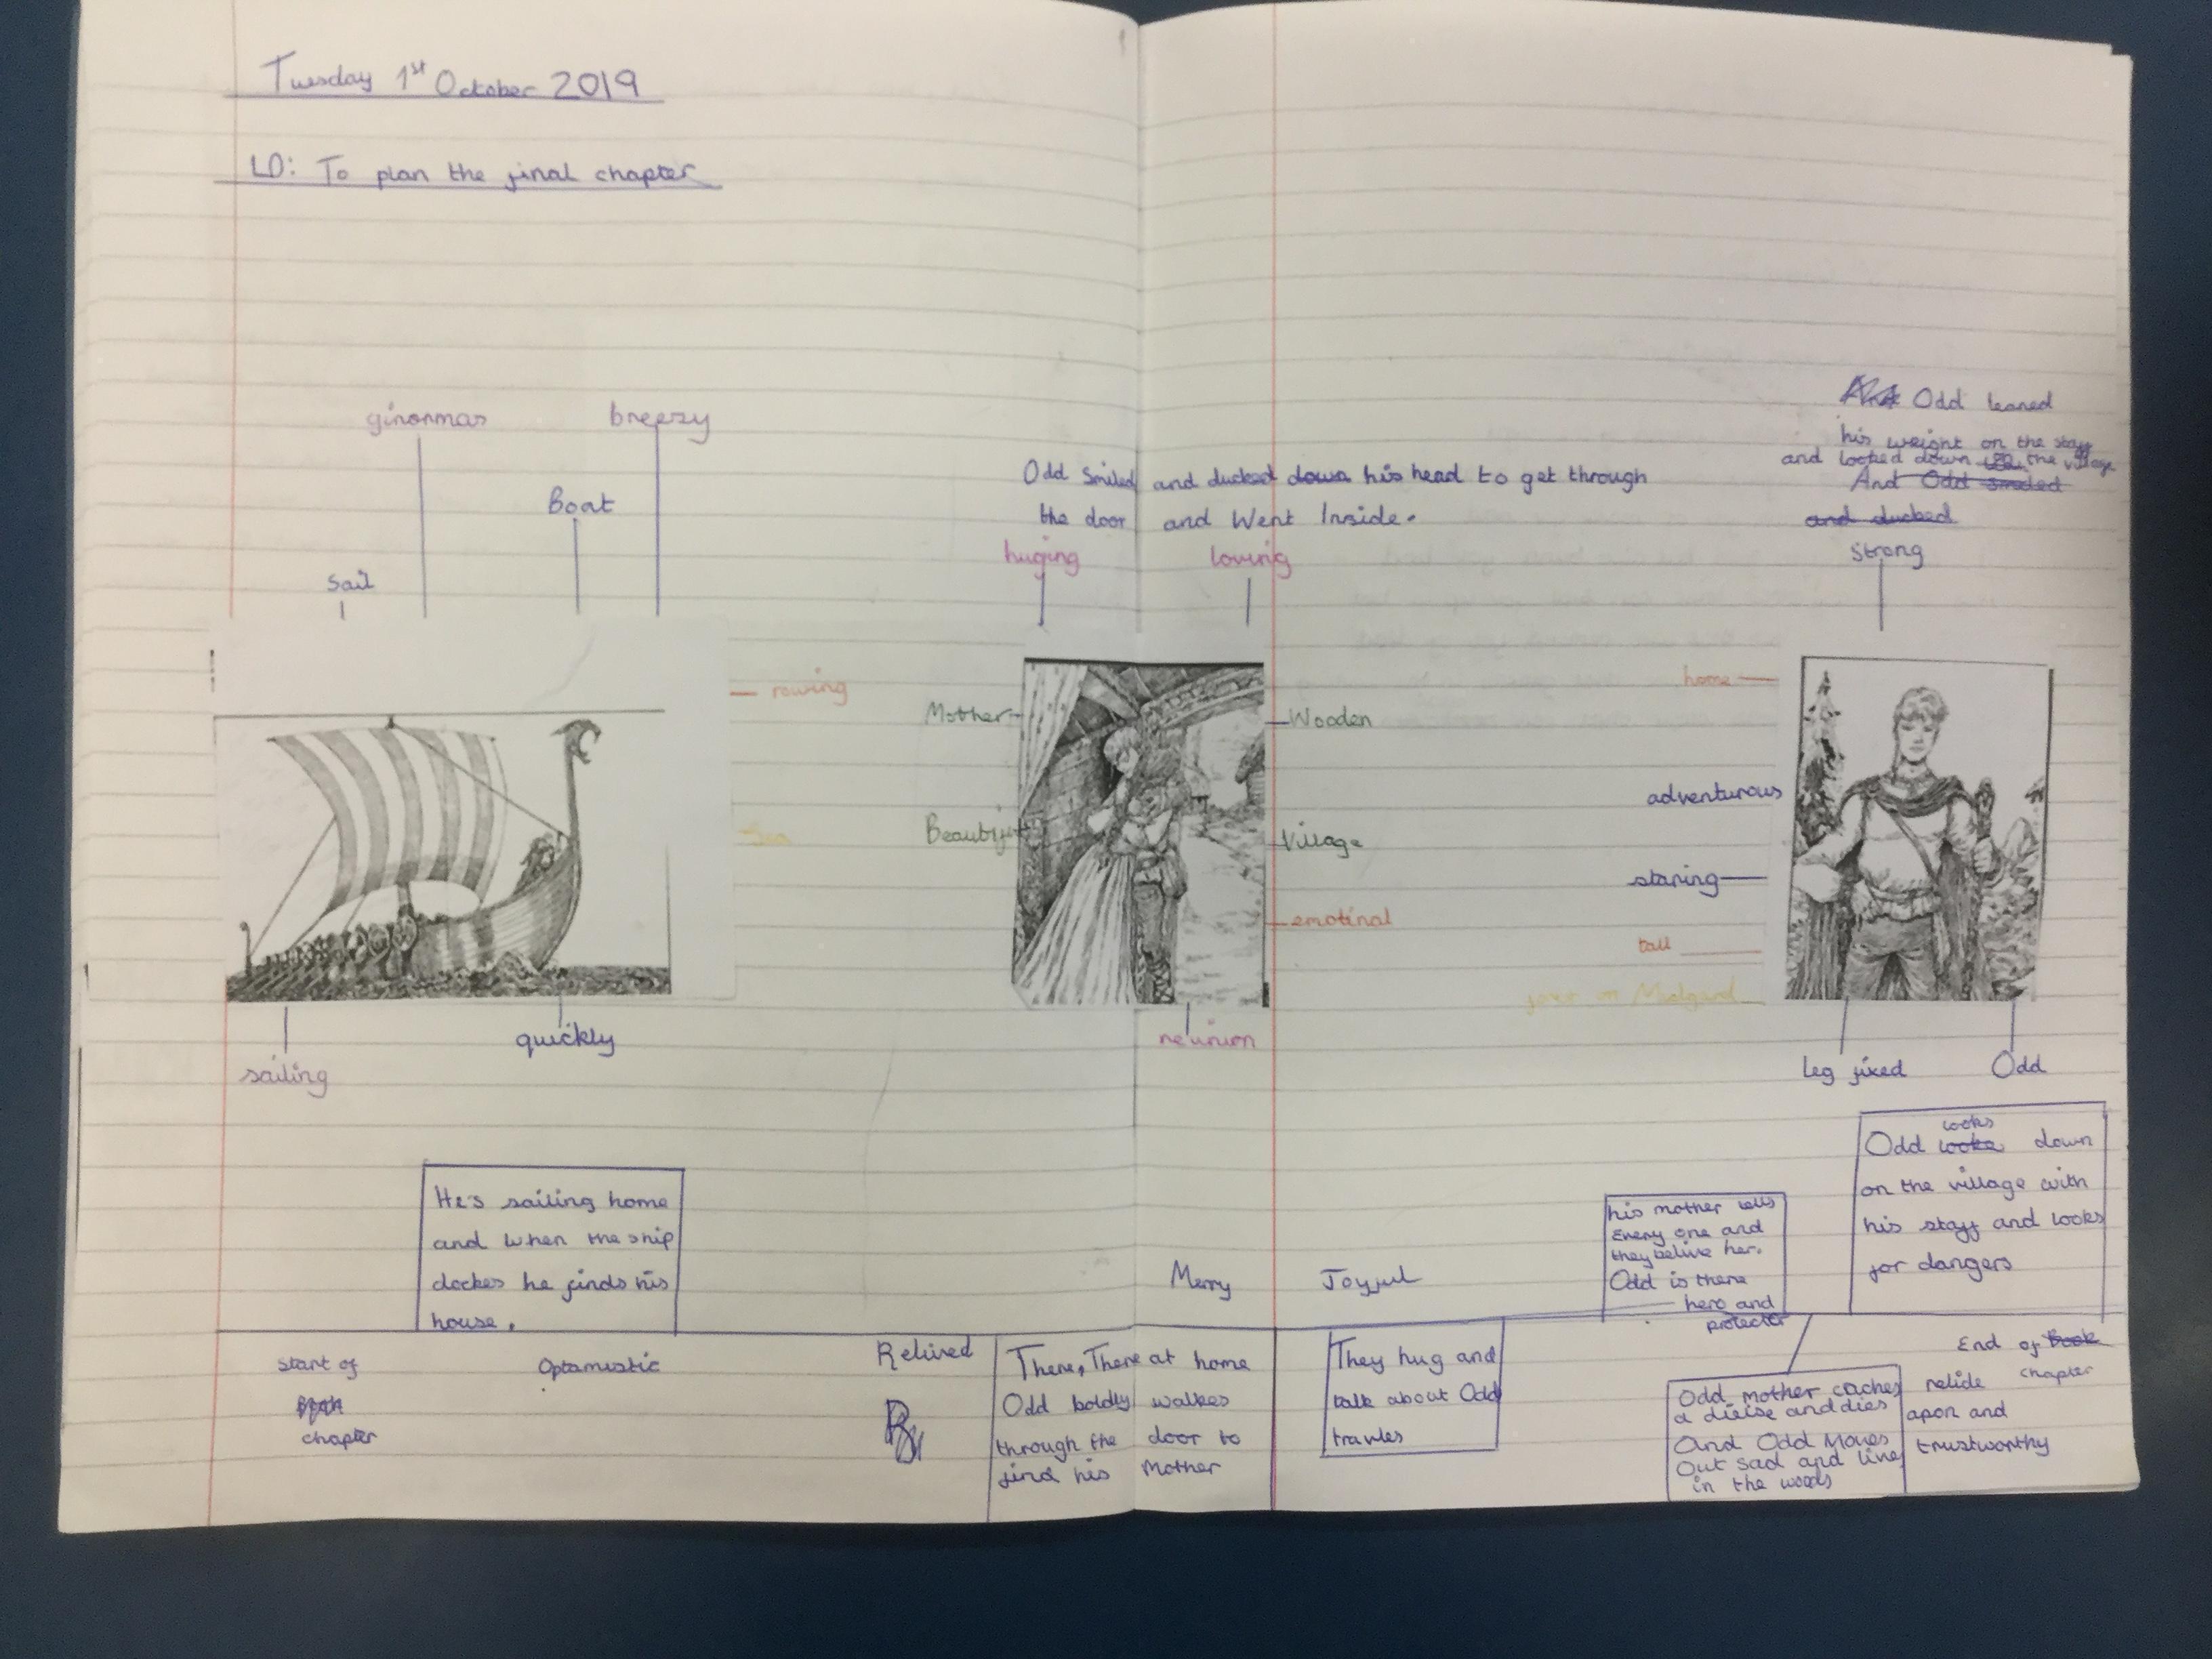 Tuesday 1st October 2019
LO: To plan the final chapter
ginormas
breezy
Boat
sail
rowing
Sea
sailing
quickly
Odd smiled and ducked down his head to get through
the door and Went Inside.
huging
loving
Mother
Beautiful
Wooden
Village
emotinal
reunion
Odd leaned
his weight on the staff
and looked down the village
And Odd smiled
and ducked
strong
home
adventurous
staring
tall
on Midgard
leg fixed
Odd
He's sailing home
and when the ship
dockes he finds his
house.
Merry
Joyful
his mother tells
Every one and
they belive her.
Odd is there
hero and
protecter
looks
Odd looke down
on the village with
his staff and looks
for dangers
Start of
Book
chapter
Optamistic
Relived
There, There at home
Odd boldly walkes
through the door to
find his Mother
They hug and
talk about Odd
travles
Odd mother caches
a dieise and dies
And Odd Moves
Out sad and lives
in the woods
End of Book
chapter
relide
apon and
trustworthy